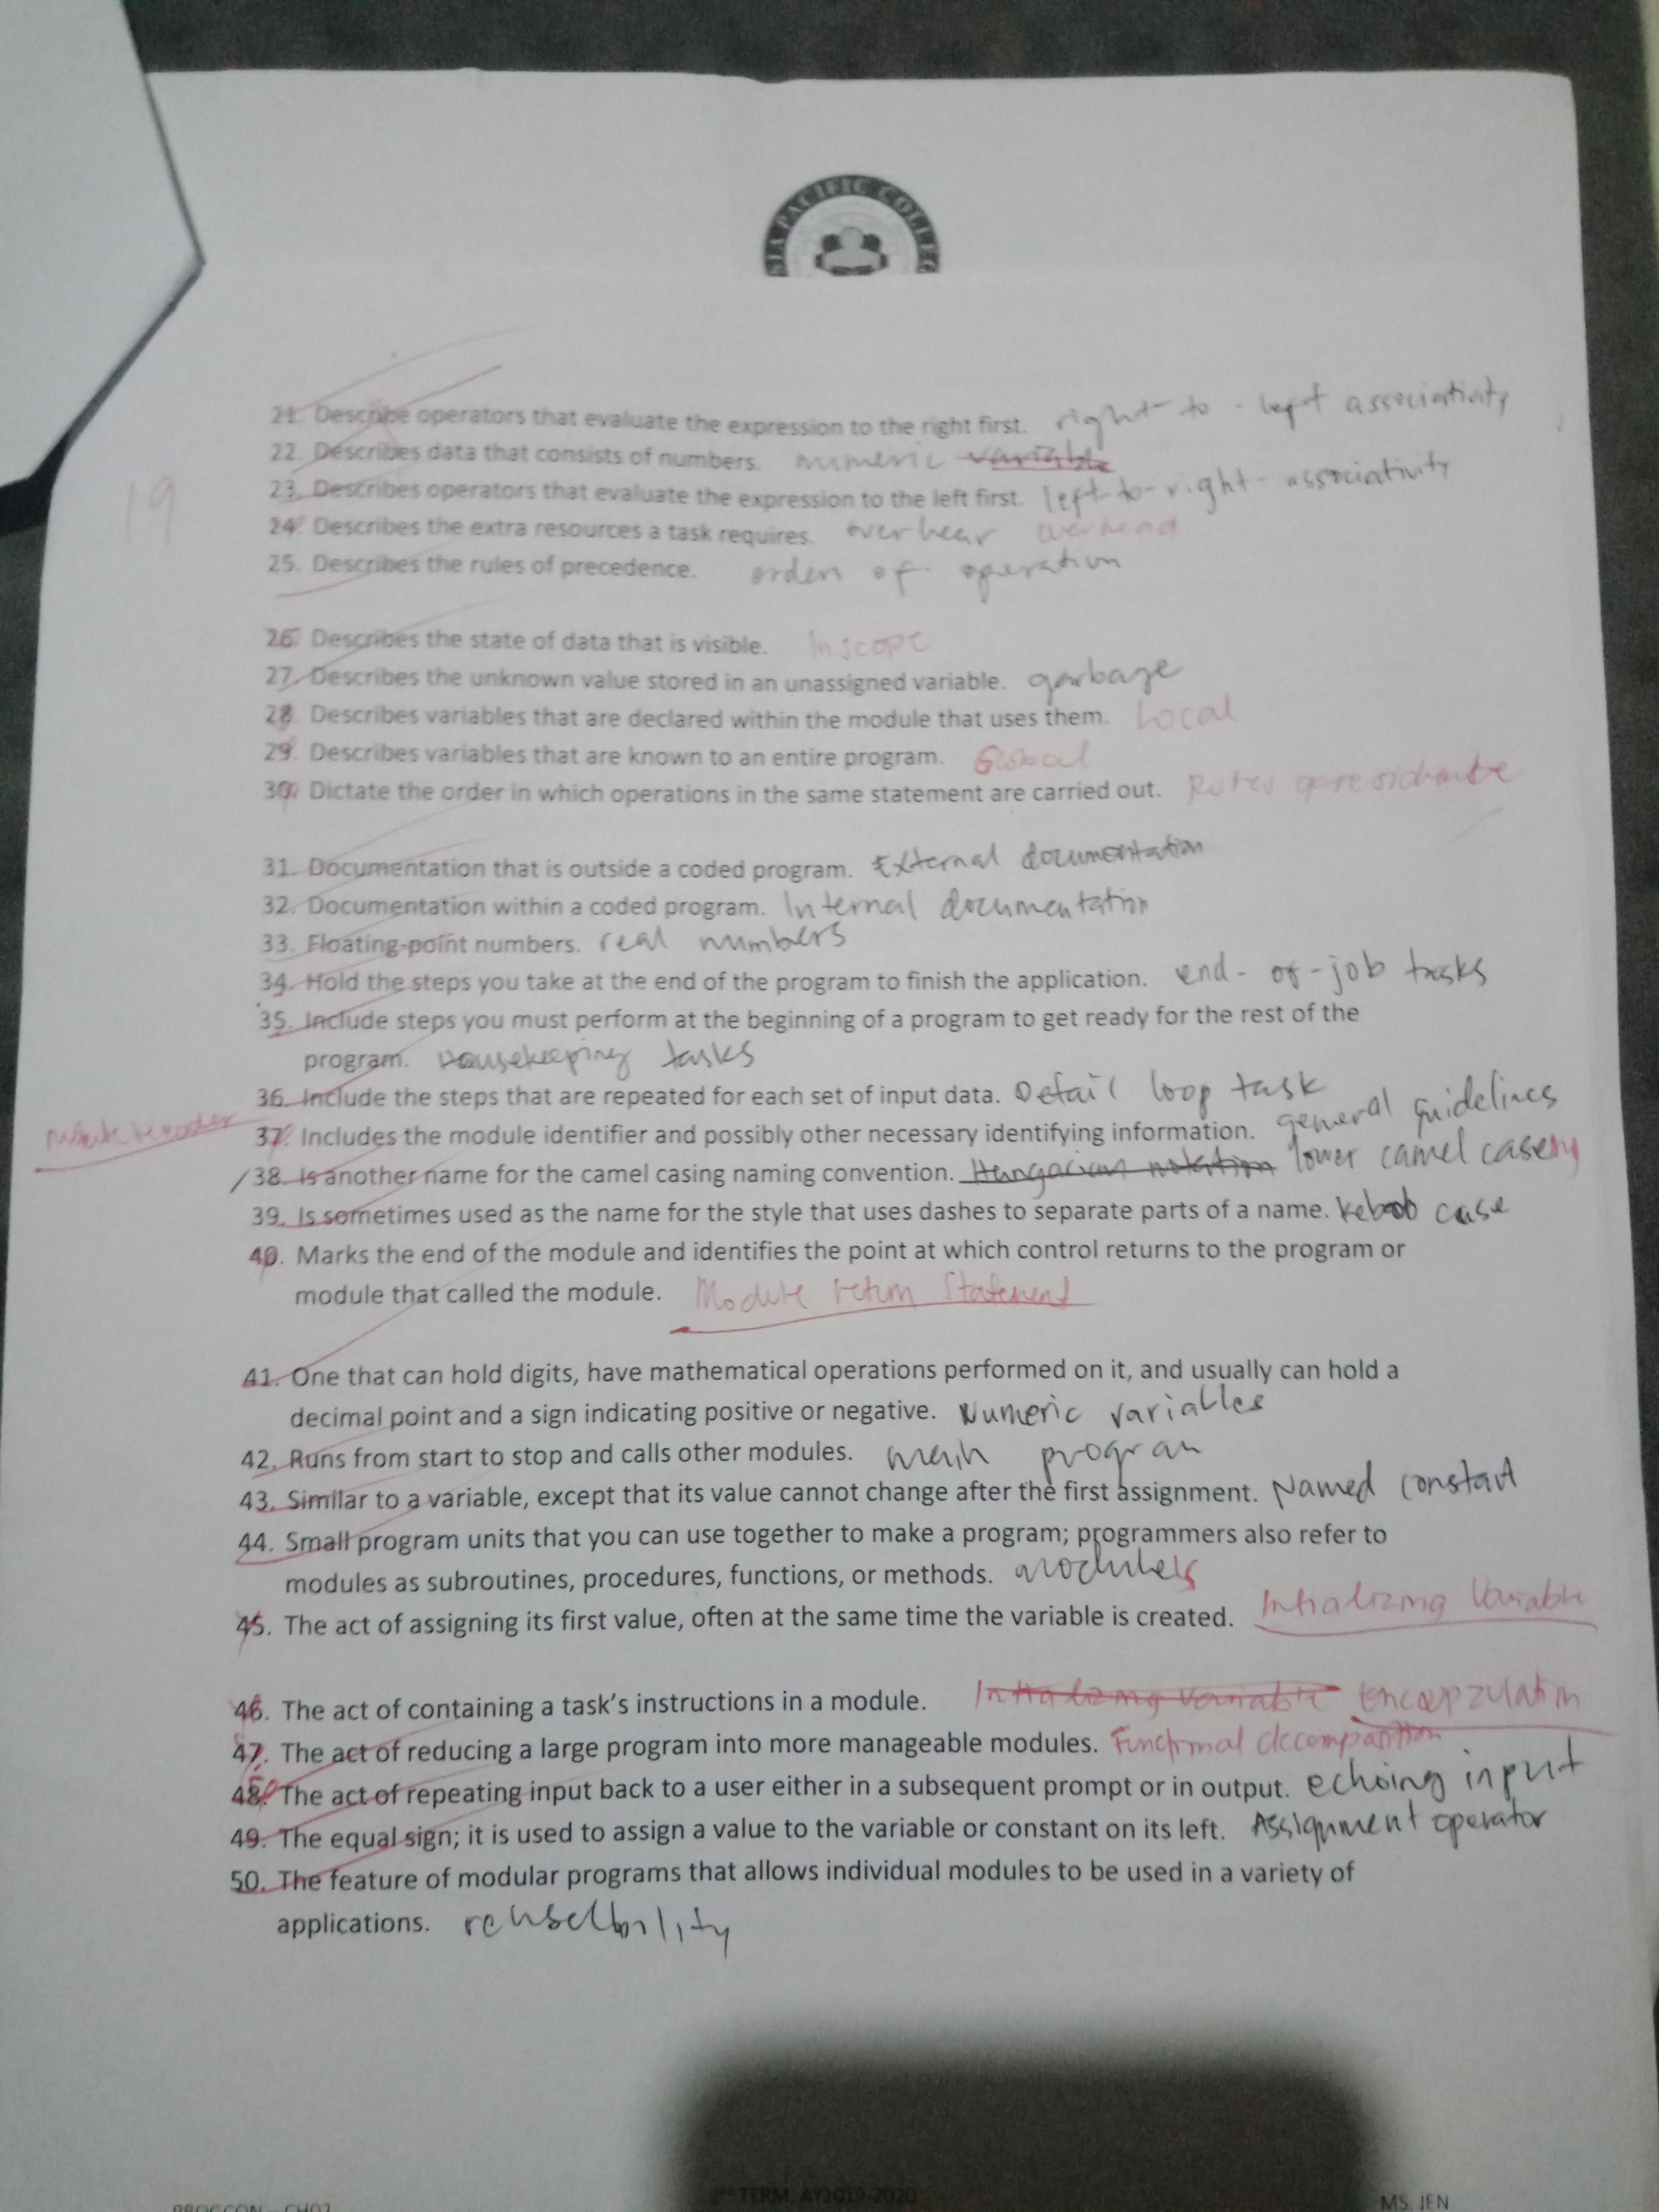 SIA PACIFIC COLLEG
21. Describe operators that evaluate the expression to the right first. right-to-left associativity
22. Describes data that consists of numbers. numeric variable
23. Describes operators that evaluate the expression to the left first. left-to-right-associativity
19
24. Describes the extra resources a task requires. overhear overhead
25. Describes the rules of precedence. orders of operation
26. Describes the state of data that is visible. In scope
27. Describes the unknown value stored in an unassigned variable. garbage
28. Describes variables that are declared within the module that uses them. Local
29. Describes variables that are known to an entire program. Global
30. Dictate the order in which operations in the same statement are carried out.
31. Documentation that is outside a coded program. External documentation
32. Documentation within a coded program. Internal documentation
33. Floating-point numbers. real numbers
34. Hold the steps you take at the end of the program to finish the application. end-of-job tasks
35. Include steps you must perform at the beginning of a program to get ready for the rest of the
program. Housekeeping tasks
36. Include the steps that are repeated for each set of input data. Detail loop task
37. Includes the module identifier and possibly other necessary identifying information. general guidelines
/38. Is another name for the camel casing naming convention. Hungarian notation lower camel casing
39. Is sometimes used as the name for the style that uses dashes to separate parts of a name. kebob case
40. Marks the end of the module and identifies the point at which control returns to the program or
module that called the module. Module return Statement
41. One that can hold digits, have mathematical operations performed on it, and usually can hold a
decimal point and a sign indicating positive or negative. Numeric variables
42. Runs from start to stop and calls other modules. main program
43. Similar to a variable, except that its value cannot change after the first assignment. Named constant
44. Small program units that you can use together to make a program; programmers also refer to
modules as subroutines, procedures, functions, or methods.
45. The act of assigning its first value, often at the same time the variable is created. Intializing Variable
46. The act of containing a task's instructions in a module. Intializing variable Encapzulation
47. The act of reducing a large program into more manageable modules. Functional decomposition
48. The act of repeating input back to a user either in a subsequent prompt or in output. echoing input
49. The equal sign; it is used to assign a value to the variable or constant on its left. Assignment operator
50. The feature of modular programs that allows individual modules to be used in a variety of
applications.
2ND TERM, AY2019-2020
PROGCON - CH02
MS. JEN